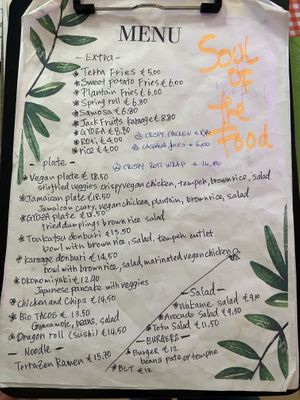 MENU
Soul
OF
the
Food
— Extra —
* Terra Fries €5.00
* Sweet potato Fries €6.00
* Plantain Fries €6.00
* Spring roll €6.80
* Samosa €6.80
* Jack Fruits karaage €8.80
* GYOZA €8.80
* ROTi €4.00
* rice €4.00
CRISPY CHICKEN
CASSAVA FRIES €6.00
CRISPY ROTI WRAP €14,50
— plate —
* Vegan plate €18.50
stirfried veggies, crispy vegan chicken, tempeh, brown rice, salad
* Jamaican plate €18.50
Jamaican curry, vegan chicken, plantain, brown rice, salad
* GYOZA plate €13.50
fried dumplings brown rice salad
* Tonkatsu donburi €15.50
bowl with brown rice, salad, tempeh cutlet
* karaage donburi €14,50
bowl with brown rice, salad, marinated vegan chicken
* Okonomiyaki €12.00
Japanese pancake with veggies
* Chicken and Chips €14.50
* Bio TACOS €13.50
Guacamole, beans, salad
* Dragon roll (sushi) €14,50
— Noodle —
TerraZen Ramen €15.70
— Salad —
* Wakame salad €9,00
* Avocado Salad €9,50
* Tofu Salad €11,50
— BURGERS —
* Burger €12
beans pate or tempehe
* BLT €12